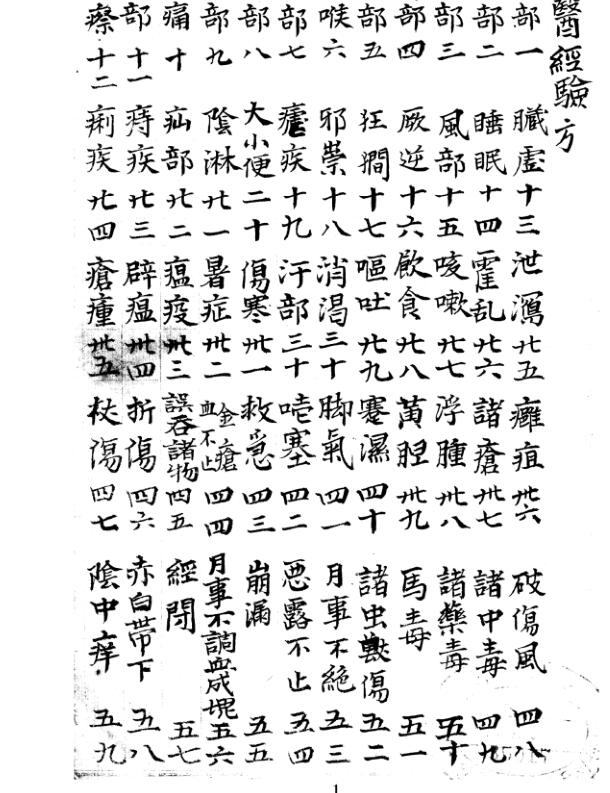 醫經驗方
部一 臟虛十三 泄瀉廿五 癰疽卅六 破傷風 四八
部二 睡眠十四 霍乱廿六 諸瘡卅七 諸中毒 四九
部三 風部十五 咳嗽廿七 浮腫卅八 諸藥毒 五十
部四 厥逆十六 飮食廿八 黃疸卅九 馬毒 五一
部五 狂癎十七 嘔吐廿九 蹇濕四十 諸虫獸傷 五二
喉六 邪祟十八 消渴三十 脚氣四一 月事不絶 五三
部七 瘧疾十九 汗部三十 噎塞四二 惡露不止 五四
部八 大小便二十 傷寒卅一 救急四三 崩漏 五五
部九 陰淋廿一 暑症卅二 金瘡血不止四四 月事不調血成塊五六
痛十 疝部廿二 瘟疫卅三 誤呑諸物四五 經閉 五七
部十一 痔疾廿三 辟瘟卅四 折傷四六 赤白帶下 五八
瘵十二 痢疾廿四 瘡瘇卅五 杖傷四七 陰中痒 五九
1